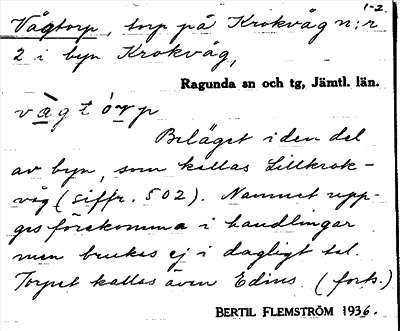 1-2.
Vågtorp, torp på Krokvåg n:r
2 i byn Krokvåg,
Ragunda sn och tg, Jämtl. län.
v å̀ g t ó r p
Beläget i den del
av byn, som kallas Lillkrok-
våg (siffr. 502). Namnet upp-
ges förekomma i handlingar
men brukas ej i dagligt tal.
Torpet kallas även Edins. (forts.)
BERTIL FLEMSTRÖM 1936.